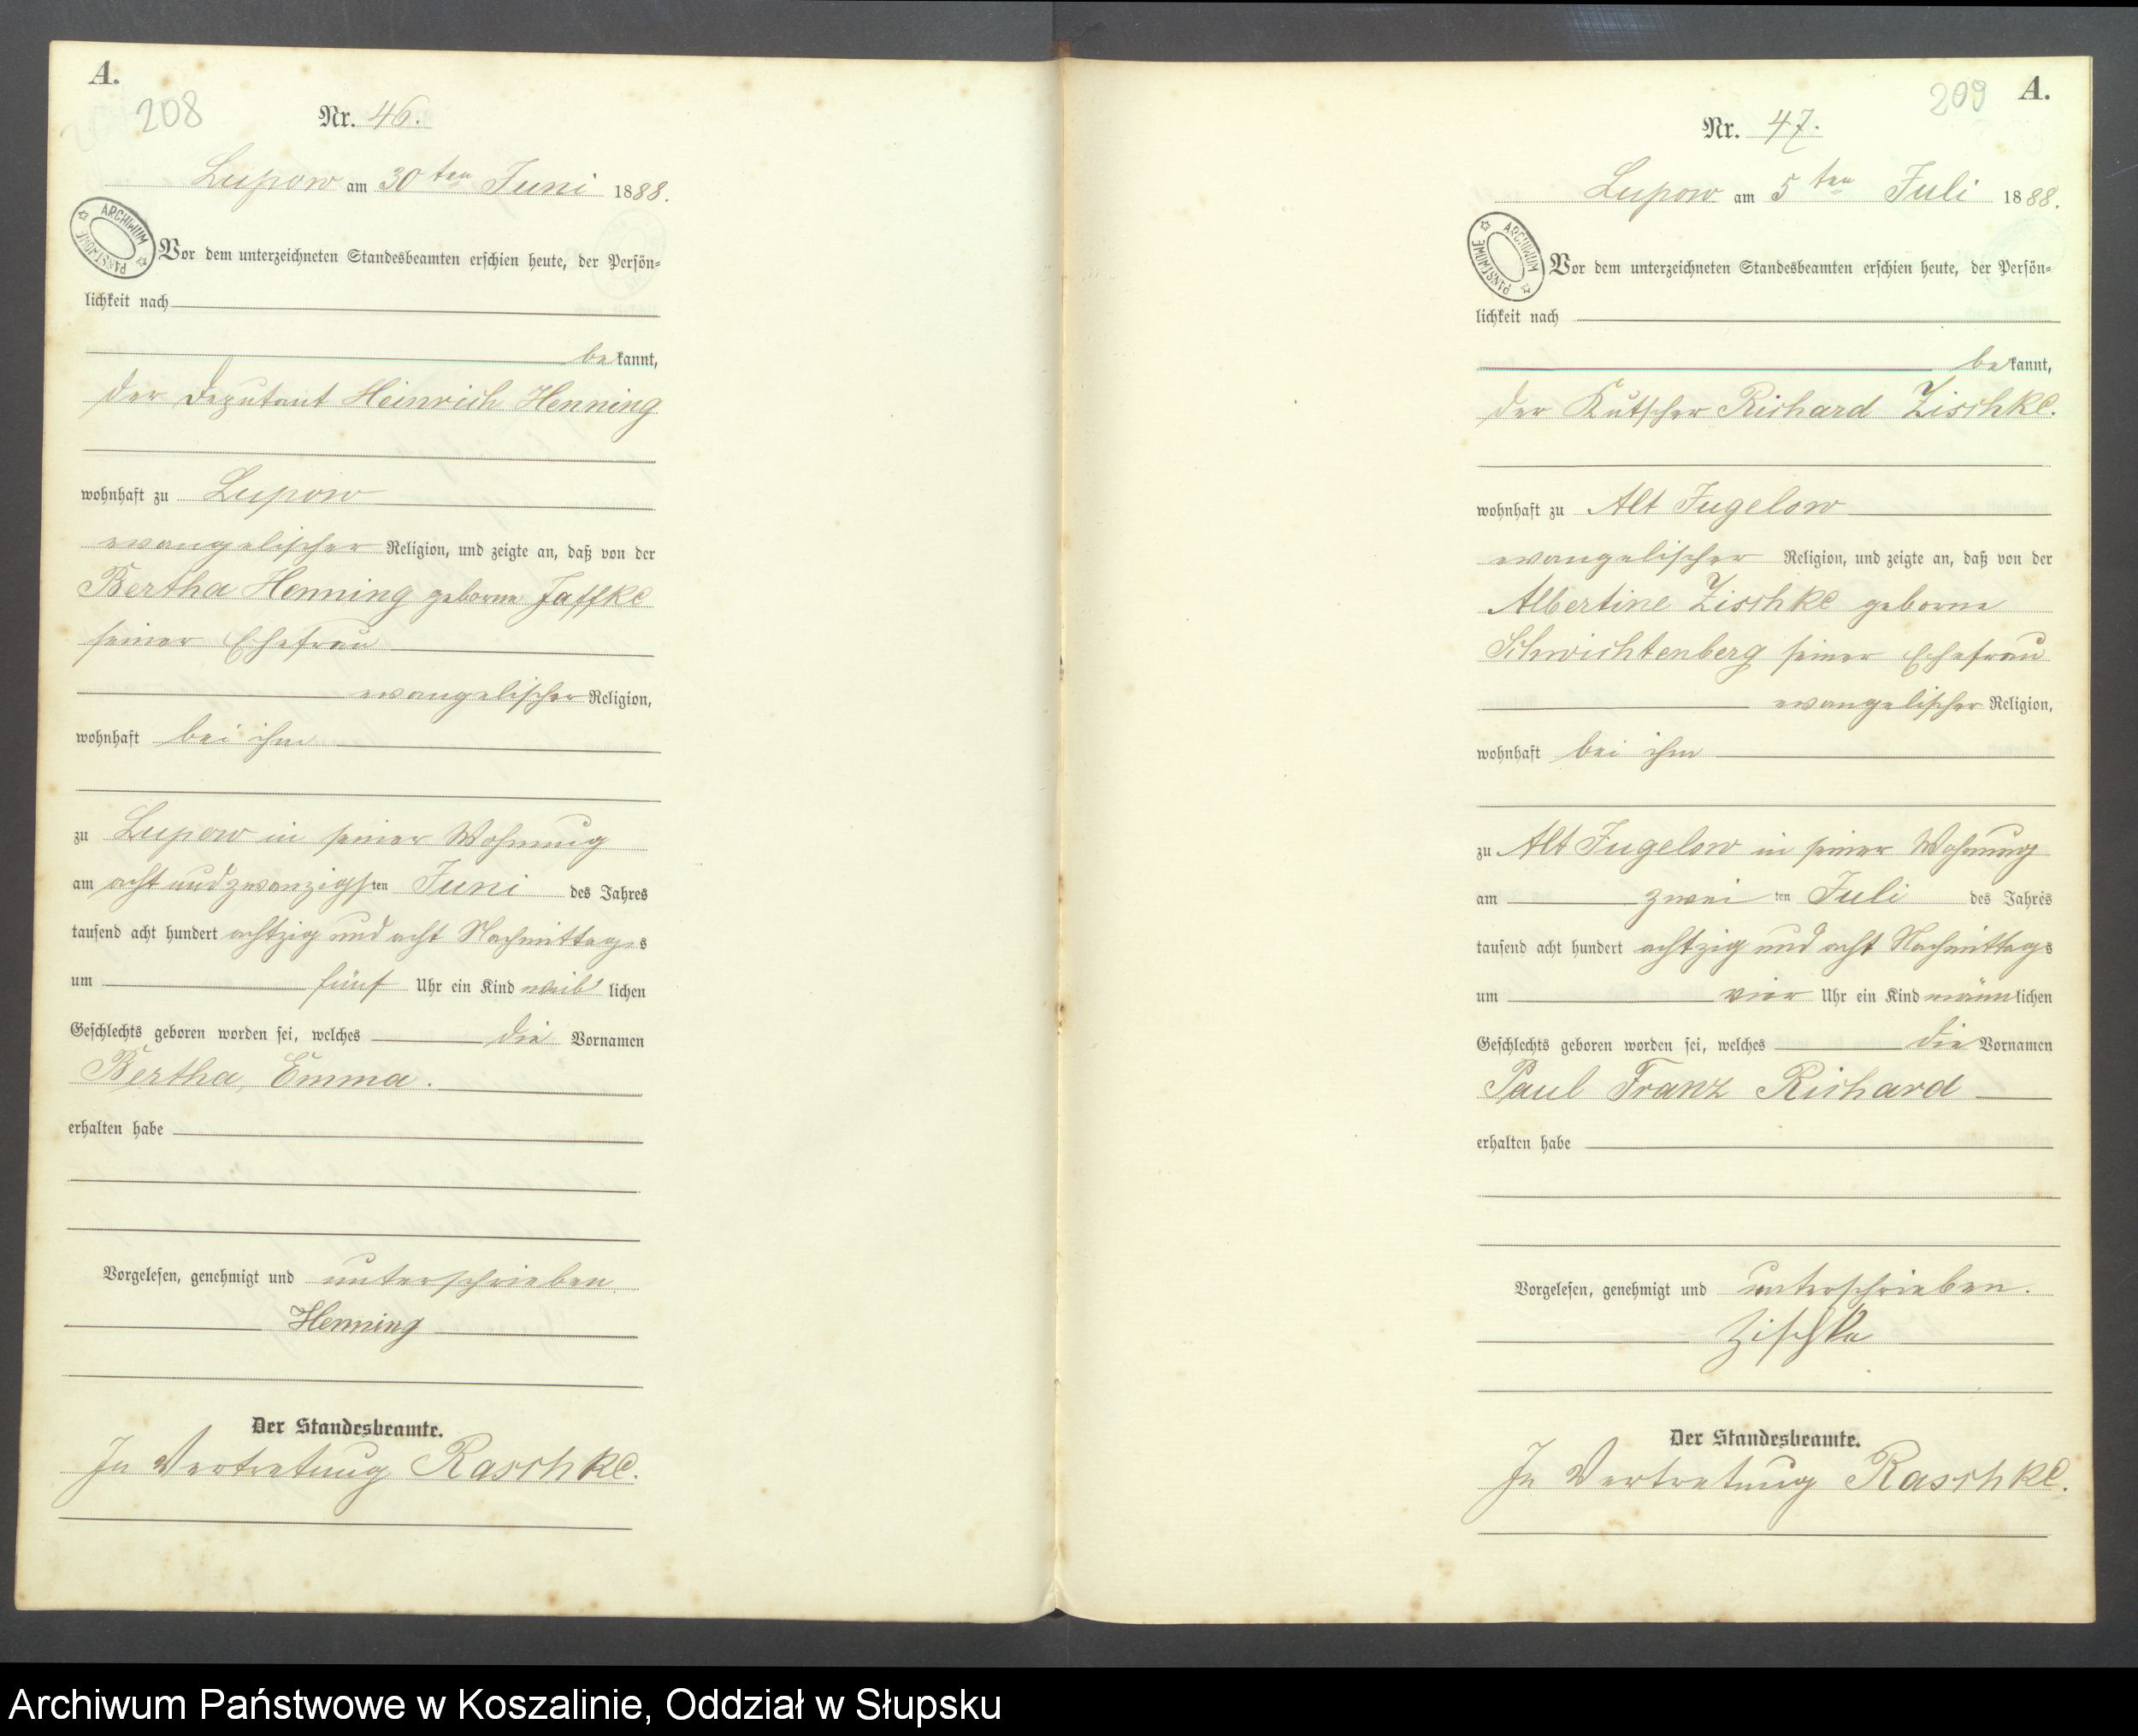 A.
208
Nr. 46.
Lupow am 30ten Juni 1888.
ARCHIWUM PAŃSTWOWE
Vor dem unterzeichneten Standesbeamten erschien heute, der Persön-
lichkeit nach
bekannt,
der Deputant Heinrich Henning
wohnhaft zu Lupow
evangelischer Religion, und zeigte an, daß von der
Bertha Henning geborne Jaffke
seiner Ehefrau
evangelischer Religion,
wohnhaft bei ihm
zu Lupow in seiner Wohnung
am acht und zwanzigsten Juni des Jahres
tausend acht hundert achtzig und acht Nachmittags
um fünf Uhr ein Kind weiblichen
Geschlechts geboren worden sei, welches die Vornamen
Bertha, Emma.
erhalten habe
Vorgelesen, genehmigt und unterschrieben
Henning
Der Standesbeamte.
In Vertretung Raschke.
209
A.
Nr. 47.
Lupow am 5ten Juli 1888.
ARCHIWUM PAŃSTWOWE
Vor dem unterzeichneten Standesbeamten erschien heute, der Persön-
lichkeit nach
bekannt,
der Kutscher Richard Zischke.
wohnhaft zu Alt Jugelow
evangelischer Religion, und zeigte an, daß von der
Albertine Zischke geborne
Schwichtenberg seiner Ehefrau
evangelischer Religion,
wohnhaft bei ihm
zu Alt Jugelow in seiner Wohnung
am zweiten Juli des Jahres
tausend acht hundert achtzig und acht Nachmittags
um vier Uhr ein Kind männlichen
Geschlechts geboren worden sei, welches die Vornamen
Paul Franz Richard
erhalten habe
Vorgelesen, genehmigt und unterschrieben.
Zischke
Der Standesbeamte.
In Vertretung Raschke.
Archiwum Państwowe w Koszalinie, Oddział w Słupsku